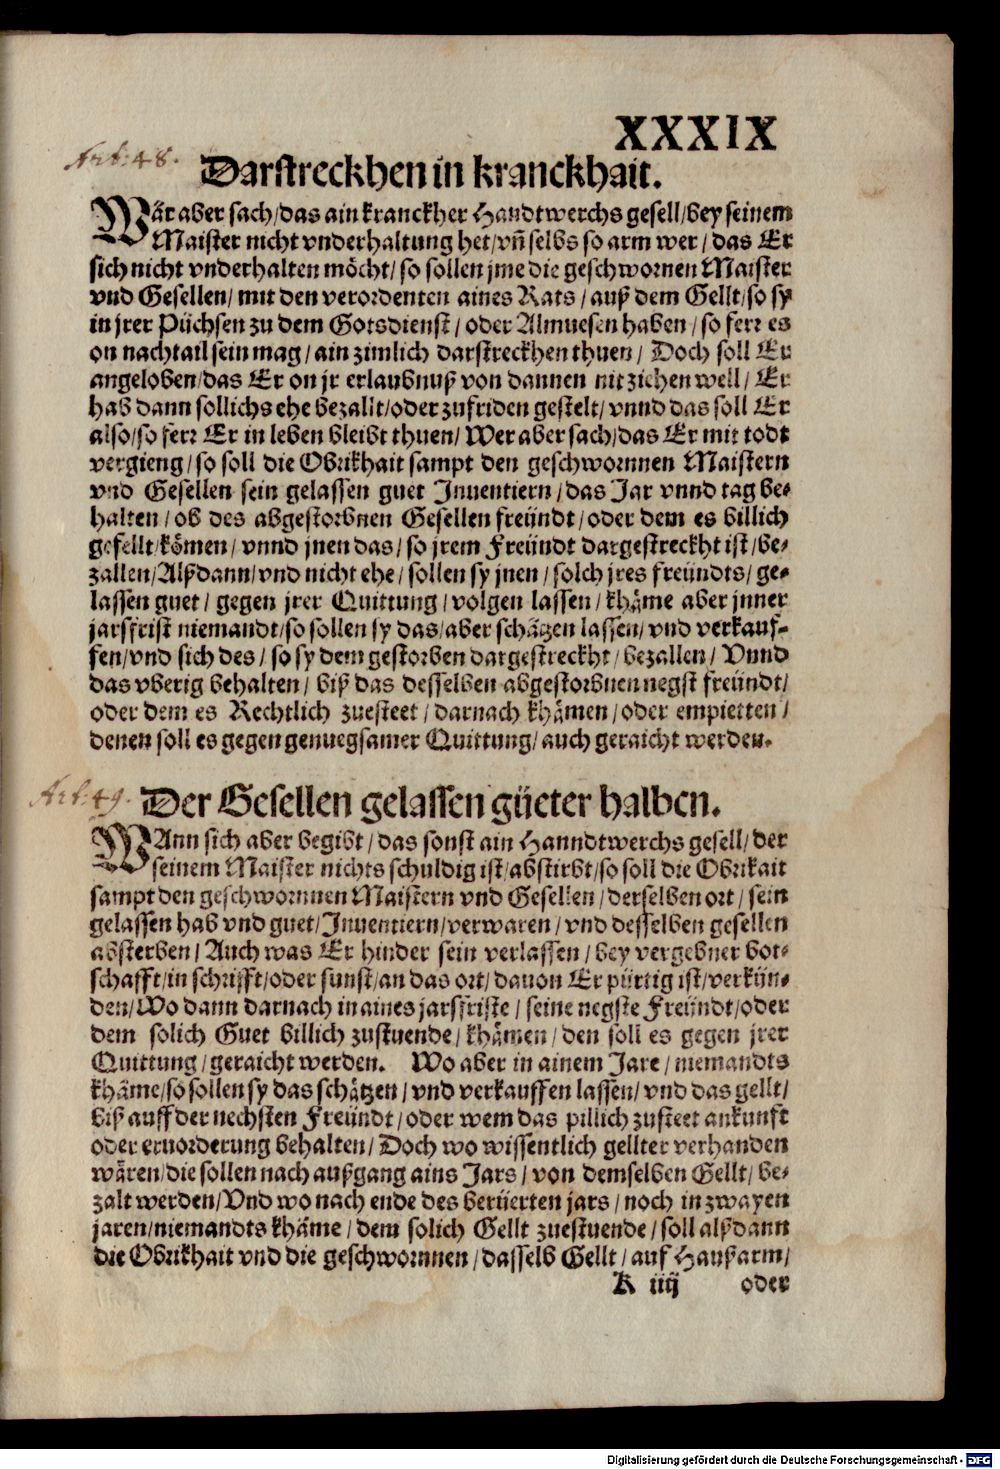 XXXIX
Art: 48.
Darstreckhen in kranckhait.
Wär aber sach/das ain kranckher Handtwerchs gesell/bey seinem
Maister nicht vnderhaltung het/vñ selbs so arm wer/das Er
sich nicht vnderhalten möcht/so sollen jme die geschwornen Maister
vnd Gesellen/mit den verordenten aines Rats/auß dem Gellt/so sy
in jrer Püchsen zu dem Gotsdienst/oder Almuesen haben/so ferr es
on nachtail sein mag/ain zimlich darstreckhen thuen/Doch soll Er
angeloben/das Er on jr erlaubnuß von dannen nit ziehen well/Er
hab dann sollichs ehe bezallt/oder zufriden gestelt/vnnd das soll Er
also/so ferr Er in leben bleibt thuen/Wer aber sach/das Er mit todt
vergieng/so soll die Obrikhait sampt den geschwornnen Maistern
vnd Gesellen sein gelassen guet Inuentiern/das Jar vnnd tag be-
halten/ob des abgestorbnen Gesellen freündt/oder dem es billich
gefellt/kömen/vnnd jnen das/so jrem Freündt dargestreckht ist/be-
zallen/Alßdann/vnd nicht ehe/sollen sy jnen/solch jres freündts/ge-
lassen guet/gegen jrer Quittung/volgen lassen/khäme aber jnner
jarsfrist niemandt/so sollen sy das/aber schätzen lassen/vnd verkauf-
fen/vnd sich des/so sy dem gestorben dargestreckht/bezallen/Vnnd
das vberig behalten/biß das desselben abgestorbnen negst freündt/
oder dem es Rechtlich zuesteet/darnach khämen/oder empietten/
denen soll es gegen genuegsamer Quittung/auch geraicht werden.
Art: 49.
Der Gesellen gelassen güeter halben.
WAnn sich aber begibt/das sonst ain Hanndtwerchs gesell/der
seinem Maister nichts schuldig ist/abstirbt/so soll die Obrikait
sampt den geschwornnen Maistern vnd Gesellen/derselben ort/sein
gelassen hab vnd guet/Inuentiern/verwaren/vnd desselben gesellen
absterben/Auch was Er hinder sein verlassen/bey vergebner bot-
schafft/in schrifft/oder sunst/an das ort/dauon Er pürtig ist/verkün-
den/Wo dann darnach in aines jarsfriste/seine negste Freündt/oder
dem solich Guet billich zustuende/khämen/den soll es gegen jrer
Quittung/geraicht werden. Wo aber in ainem Jare/niemandts
khäme/so sollen sy das schätzen/vnd verkauffen lassen/vnd das gellt/
biß auff der nechsten Freündt/oder wem das pillich zusteet ankunft
oder eruorderung behalten/Doch wo wissentlich gellter verhanden
wären/die sollen nach außgang ains Jars/von demselben Gellt/be-
zalt werden/Vnd wo nach ende des berüerten jars/noch in zwayen
jaren/niemandts khäme/dem solich Gellt zuestuende/soll alßdann
die Obrikhait vnd die geschwornnen/dasselb Gellt/auf Haußarm/
K iiij oder
Digitalisierung gefördert durch die Deutsche Forschungsgemeinschaft - DFG